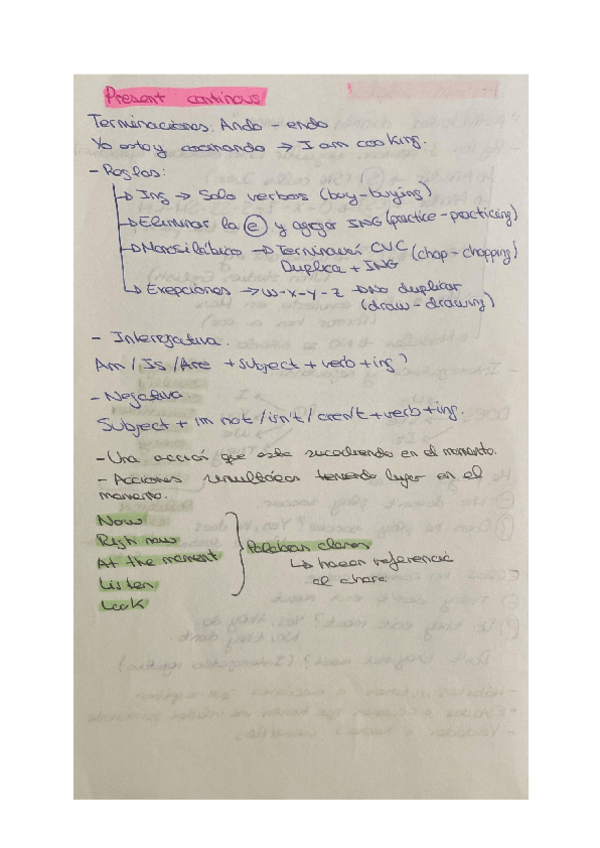 Present continous
Terminaciones: Ando - endo
Yo estoy cocinando → I am cooking.
- Reglas:
↳ Ing → Solo verbos (buy - buying)
↳ Eliminar la e y agregar ING (practice - practicing)
↳ Monosilábico → Terminan CVC (chop - chopping)
Duplica + ING
↳ Exepciones → w-x-y-z → No duplicar
(draw - drawing)
- Interrogativa.
Am / Is / Are + subject + verb + ing?
- Negativa
Subject + Im not / isn't / aren't + verb + ing.
- Una acción que esta sucediendo en el momento.
- Acciones teniendo lugar en el
momento.
Now
Right now
At the moment
Listen
Look
Palabras claves
↳ hacen referencia
al ahora